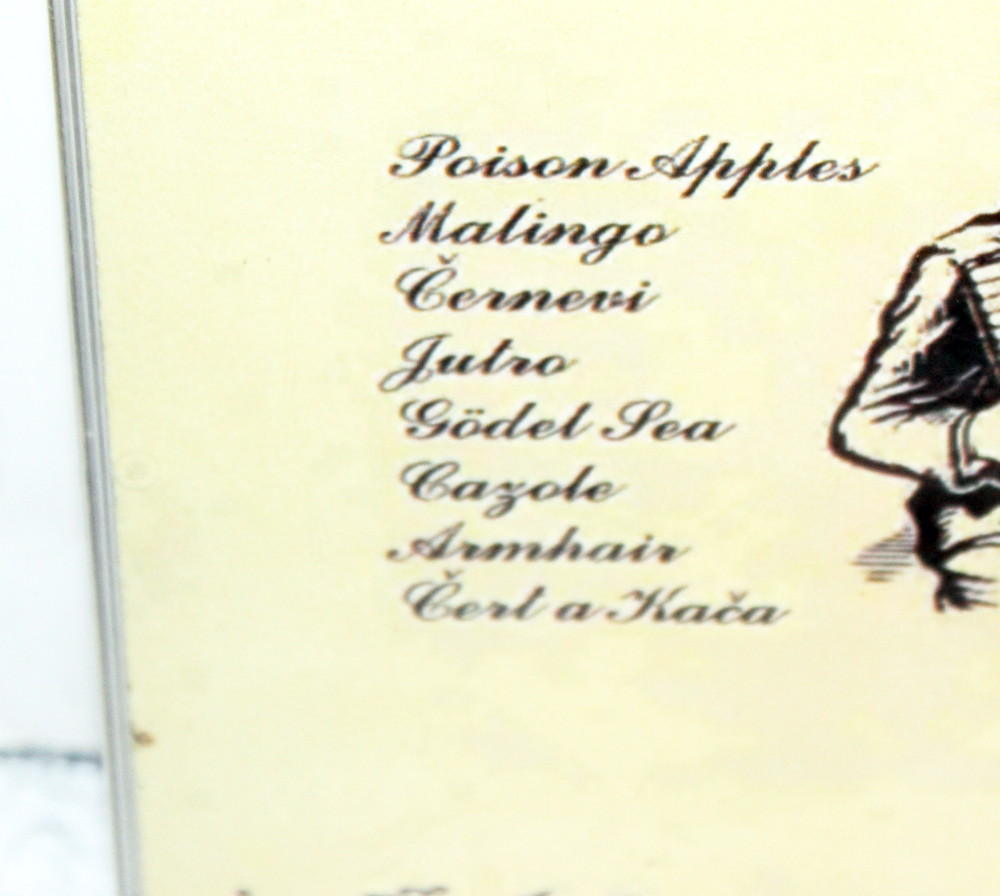 Poison Apples
Malingo
Černevi
Jutro
Gödel Sea
Cazole
Armhair
Čert a Kača